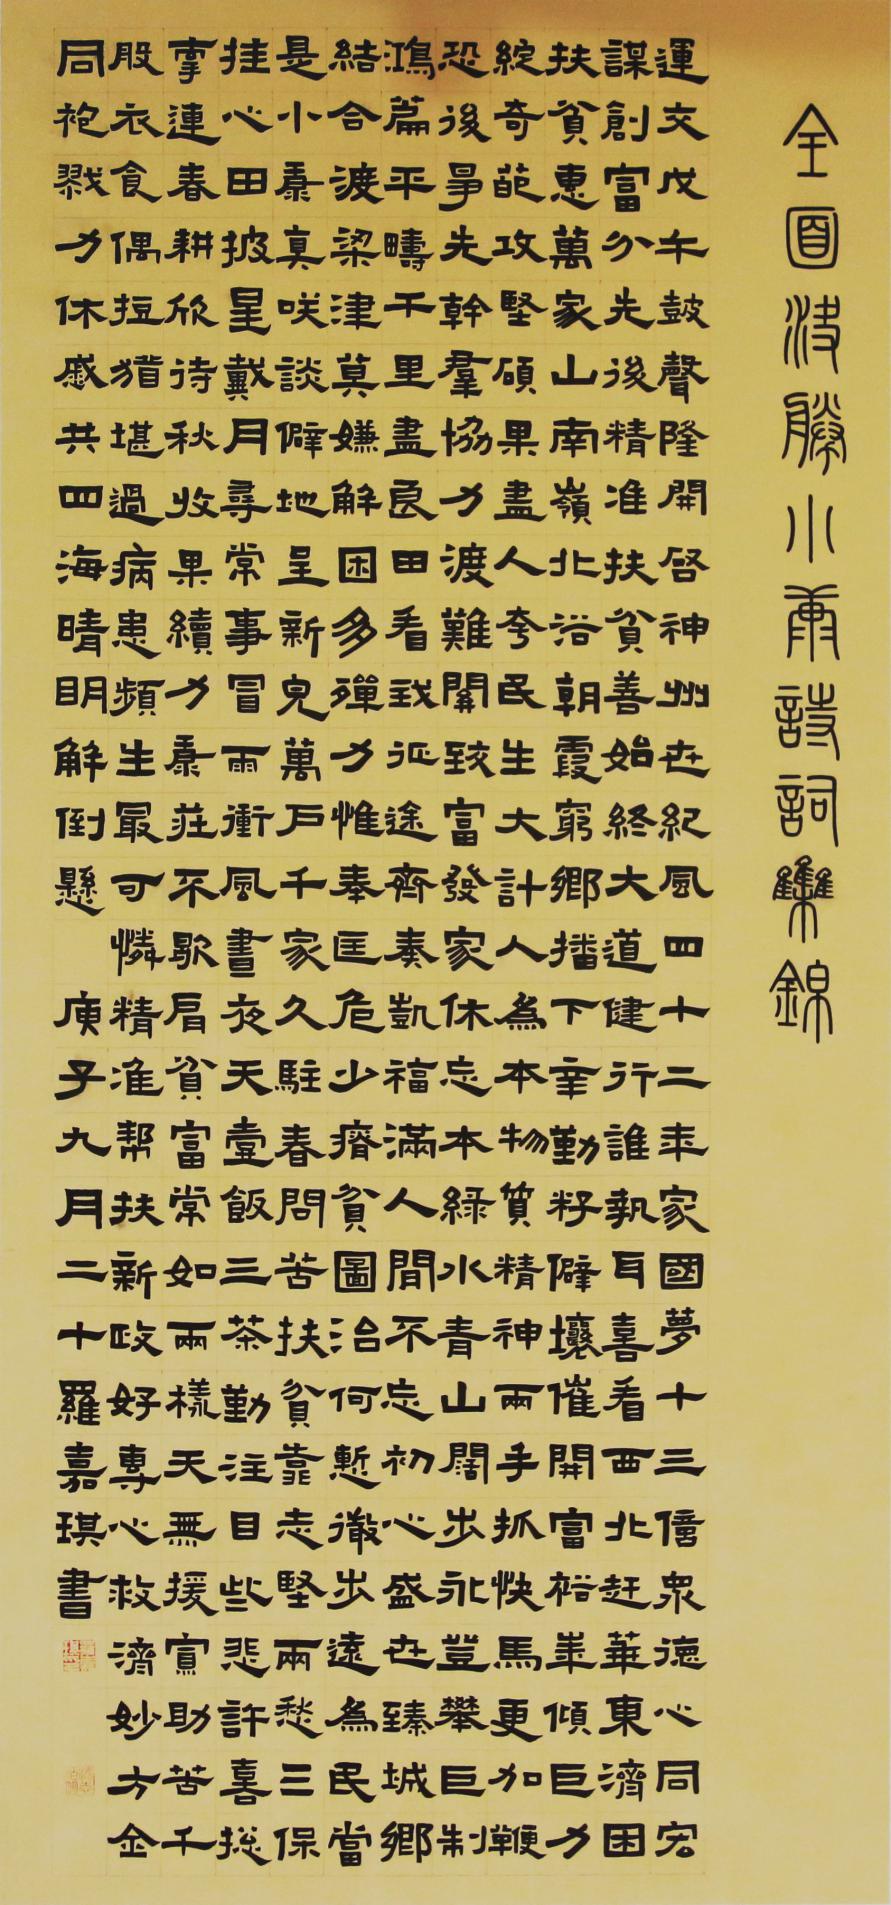 全面決勝小康詩詞集錦
運交戊午鼓聲隆開啓神州世紀風四十二年家國夢十三億眾德心同宏
謀創富分先後精准扶貧善始終大道健行誰執耳喜看西北赶華東濟困
扶貧惠萬家山南嶺北浴朝霞窮鄉播下辛勤籽僻壤催開富裕華傾巨力
綻奇葩攻堅碩果盡人夸民生大計人為本物質精神兩手抓快馬更加鞭
恐後爭先幹群協力渡難關致富發家休忘本綠水青山闊步永登攀巨制
鴻篇平疇千里盡良田看我征途齊奏凱福滿人間不忘初心盛世臻城鄉
結合渡梁津莫嫌解困多殫力惟奉匡危少瘠貧圖治何慙徹步遠為民當
是小康真咲談僻地呈新皃萬戶千家久駐春問苦扶貧靠志堅兩愁三保
挂心田披星戴月尋常事冒雨衝風晝夜天壹飯三茶勤注目些悲許喜揔
牽連春耕欣待秋收果續力康莊不歇肩貧富常如兩樣天無援寡助苦千
般衣食偶短猶堪過病患頻生最可憐精准幫扶新政好專心救濟妙方金
同袍戮力休戚共四海晴明解倒懸 庚子九月二十羅嘉琪書